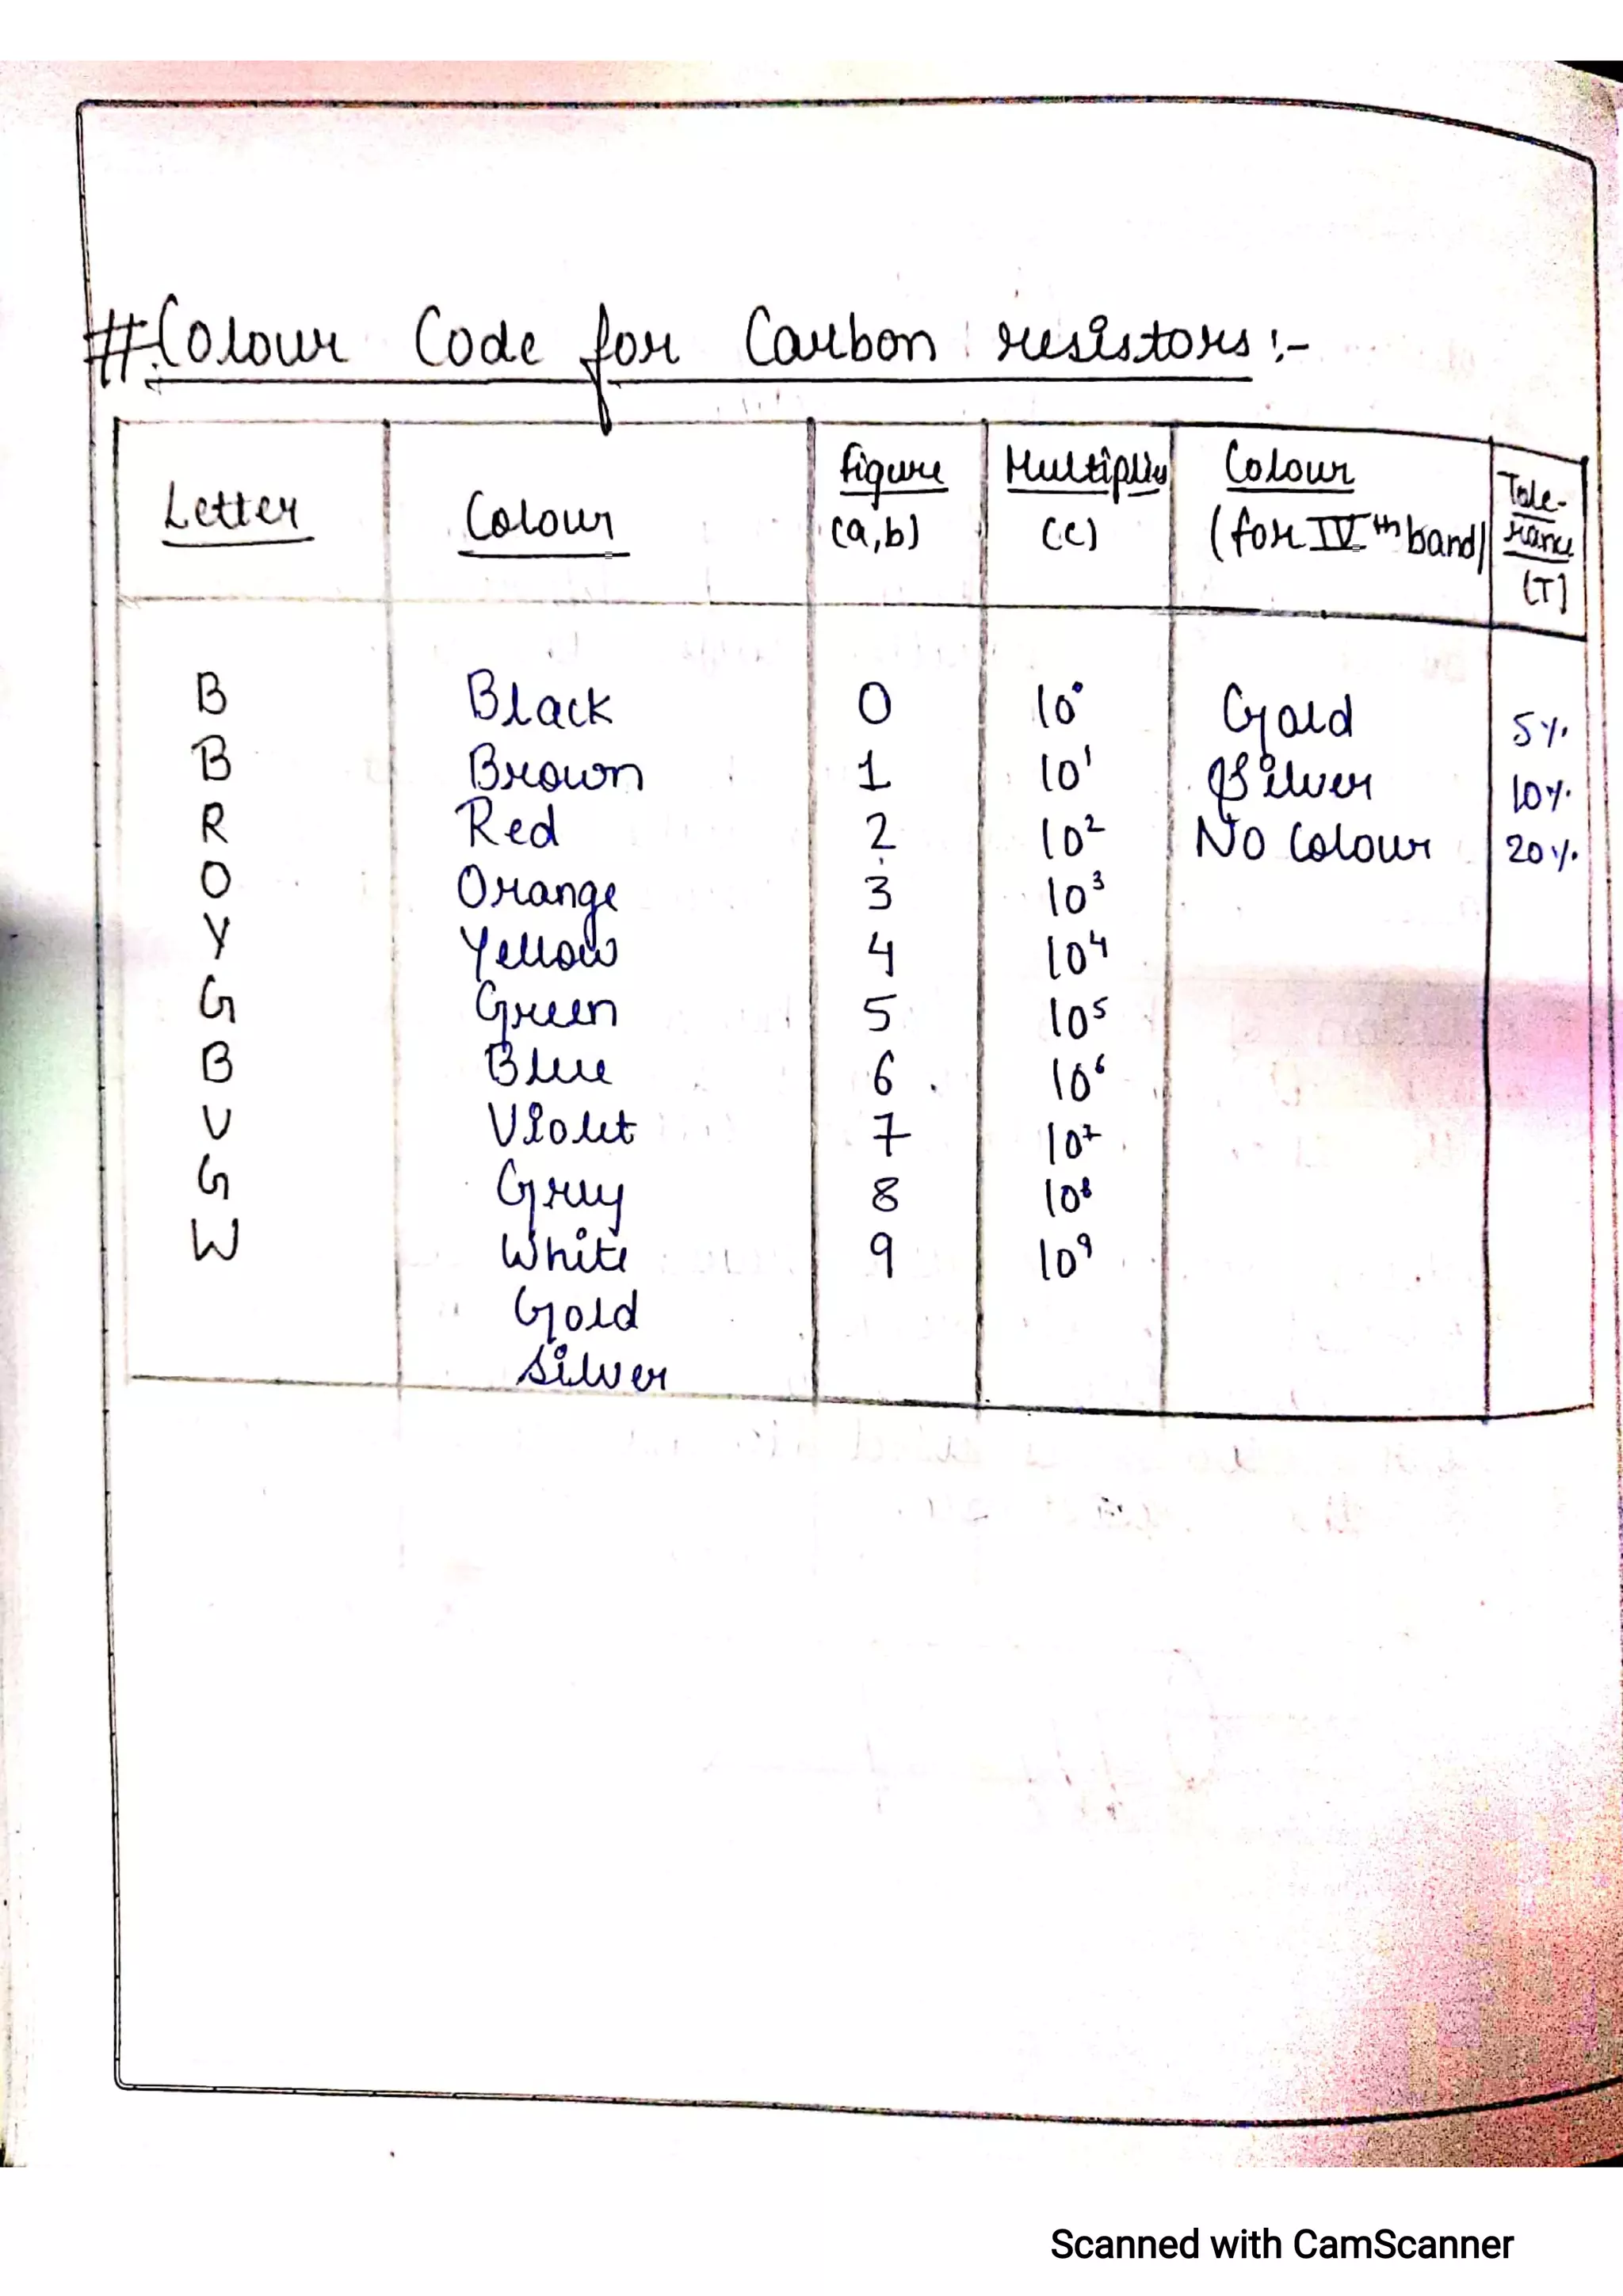 #Colour Code for Carbon resistors :-
Letter Colour Figure (a,b) Multiplier (c) Colour (for IVth band) Tole-rance (T)
B Black 0 10⁰ Gold 5%
B Brown 1 10¹ Silver 10%
R Red 2 10² No Colour 20%
O Orange 3 10³
Y Yellow 4 10⁴
G Green 5 10⁵
B Blue 6 10⁶
V Violet 7 10⁷
G Grey 8 10⁸
W White 9 10⁹
Gold
Silver
Scanned with CamScanner